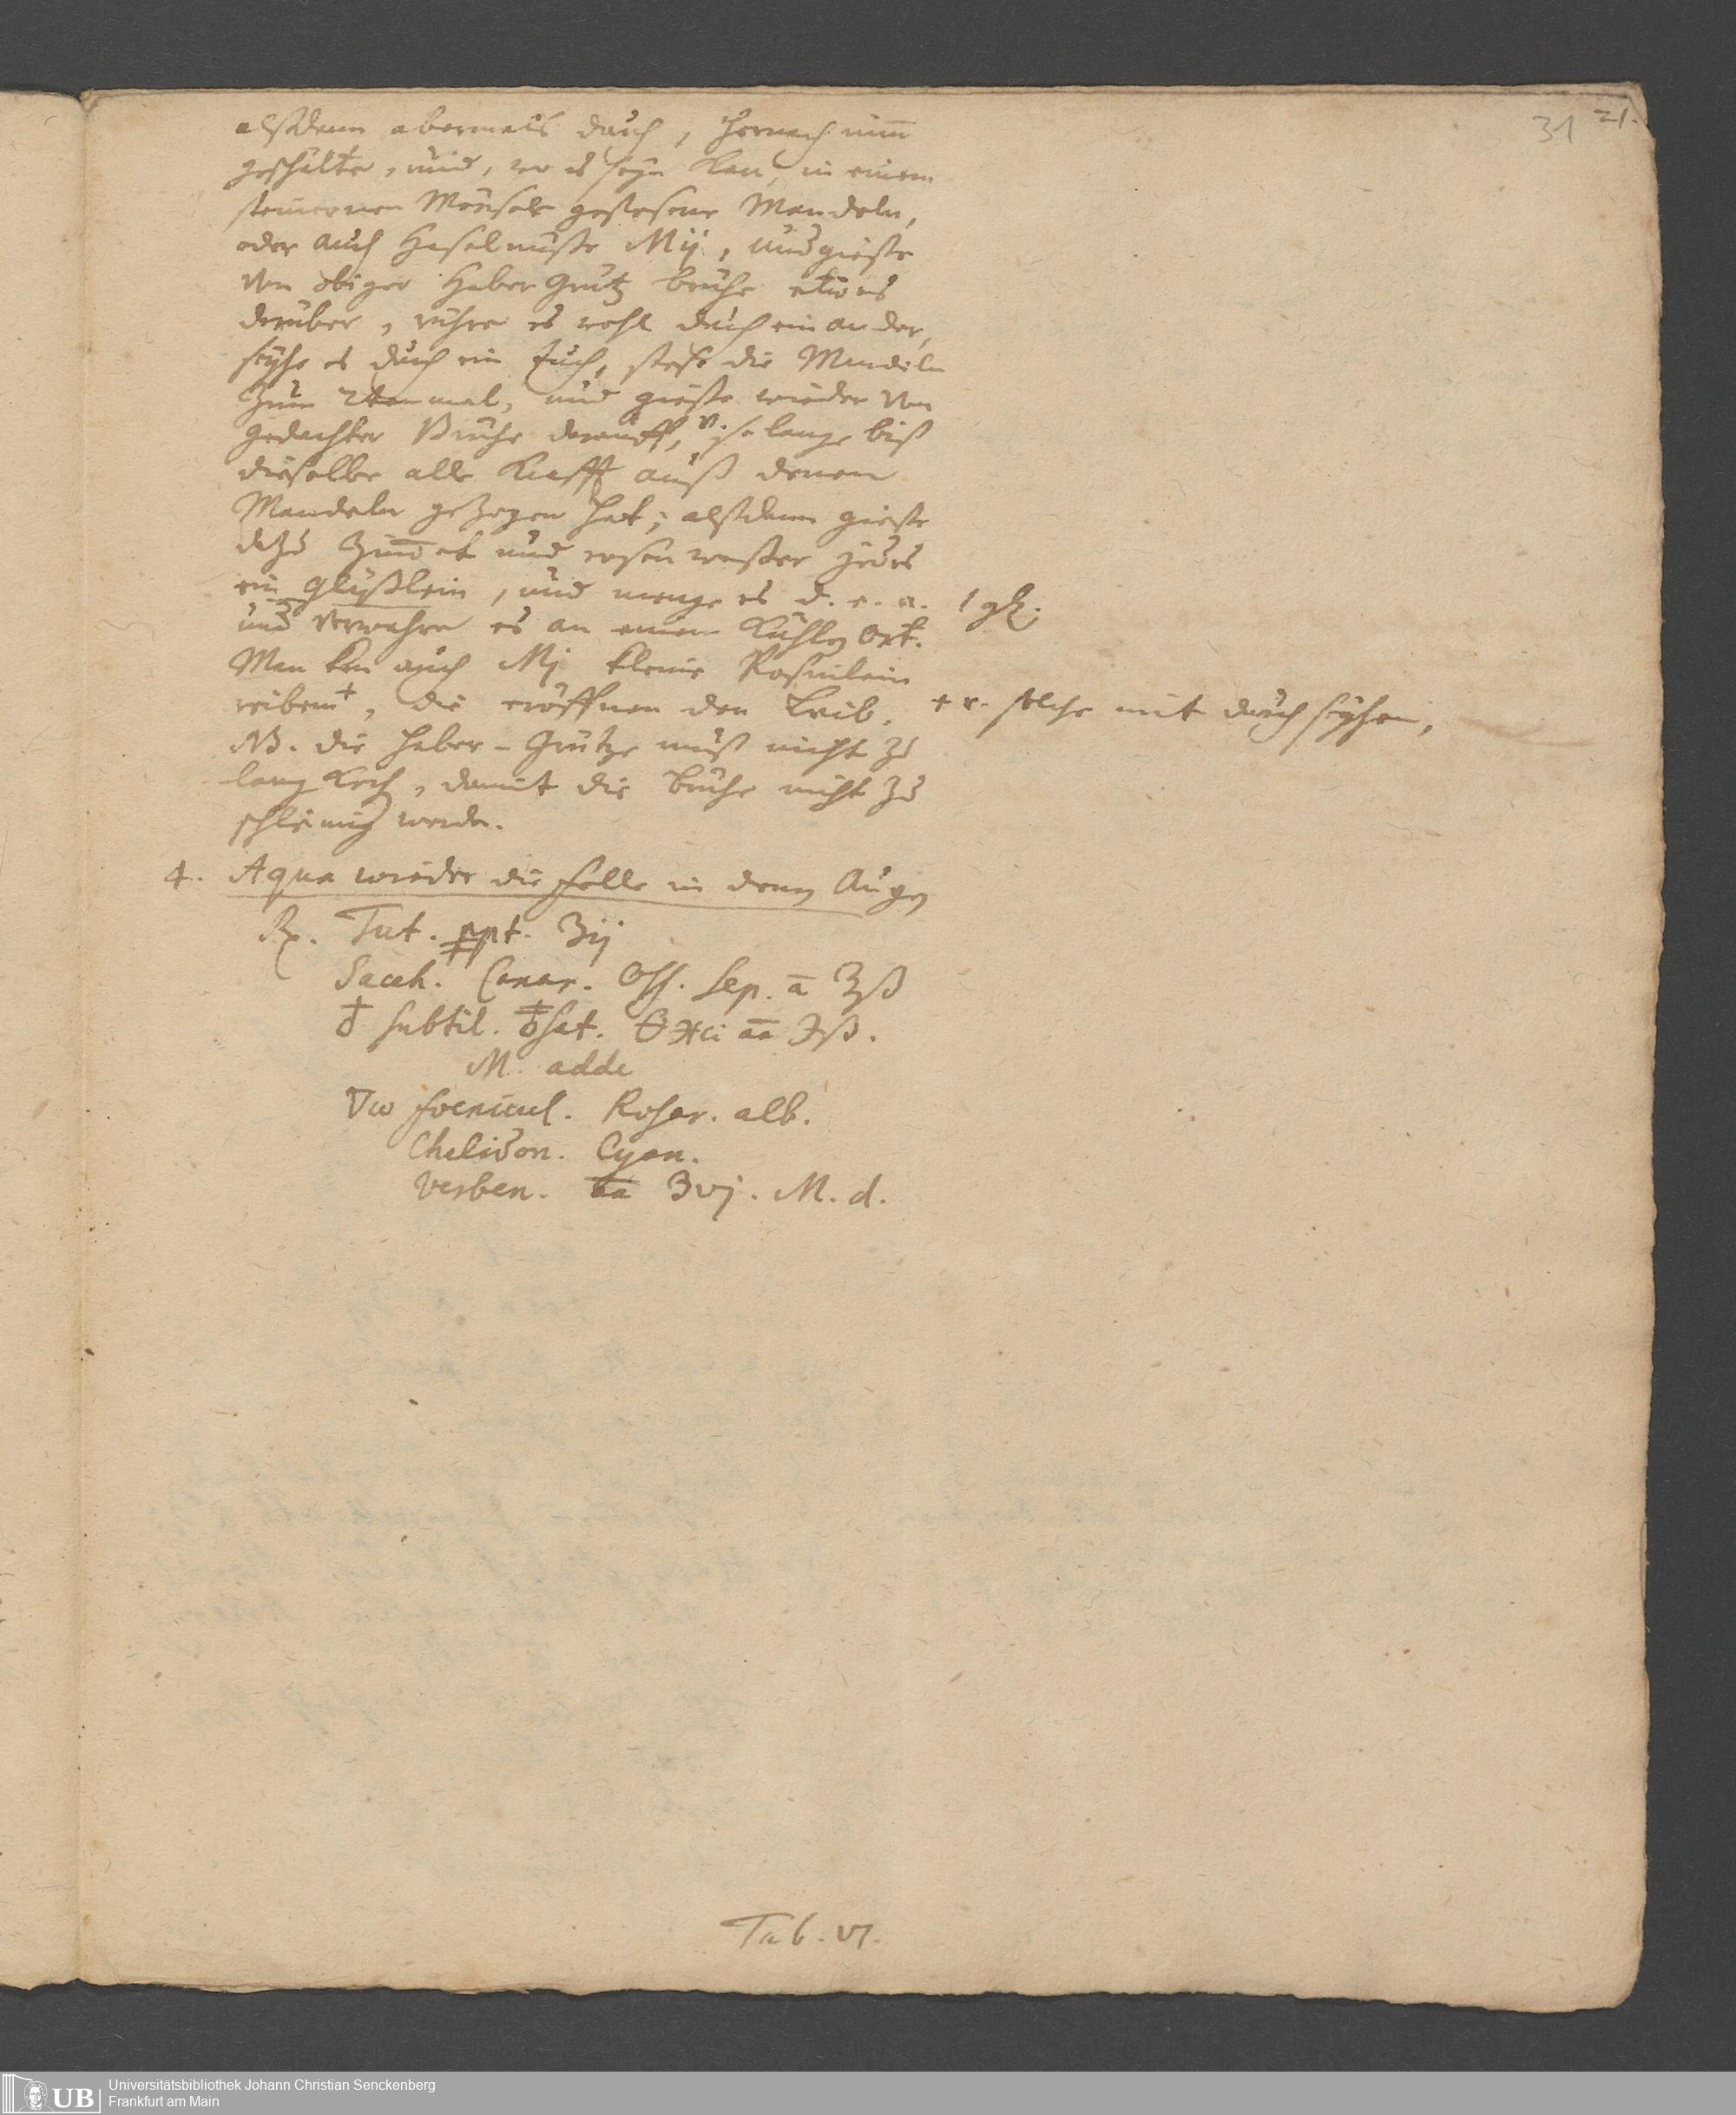 31 21.
alßdann abermals durch, hernach nim̄
geschälte, und, wo es seyn kan, in einem
steinernen Mörsel gestosene Mandeln,
oder auch Haselnüße Mij, und gieße
von obiger Haber Grütz brühe etwas
darüber, rühre es wohl durch ein ander,
seyhe es durch ein Tuch, stose die Mandeln
zum 2ten mal, und gieße wieder von
gedachter Brühe darauff, v. so lange biß
dieselbe alle Krafft auß denen
Mandeln gezogen hat; alßdann gieße
dazu Zim̄et und rosen waßer jedes
ein Gläßlein, und menge es d. e. a.
und verwahre es an einem kühlen Ort.
Man kan auch Mj kleine Rosinlein
reiben+, die eröffnen den Leib.
+ v. solche mit durch seyhen,
NB. die Haber-Grütze muß nicht zu
lang koch, damit die Brühe nicht zu
schleimig werde.
4. Aqua wieder die Felle in denen Augen
Rx. Tut. ppt. ʒij
Sacch. Canar. Oss. Sep. a ʒß
♁ subtil. sat. aa ℈ß.
M. adde
▽ Foenicul. Rosar. alb.
Chelidon. Cyan.
Verben. aa ʒvj. M. d.
Tab. VI.
UB Universitätsbibliothek Johann Christian Senckenberg
Frankfurt am Main